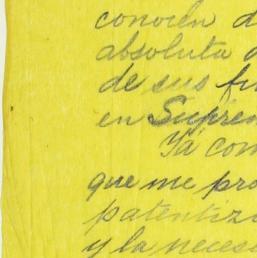 conocen d
absoluta d
de sus fu
en Supre
Ya com
que me pro
patentiza
y la neces